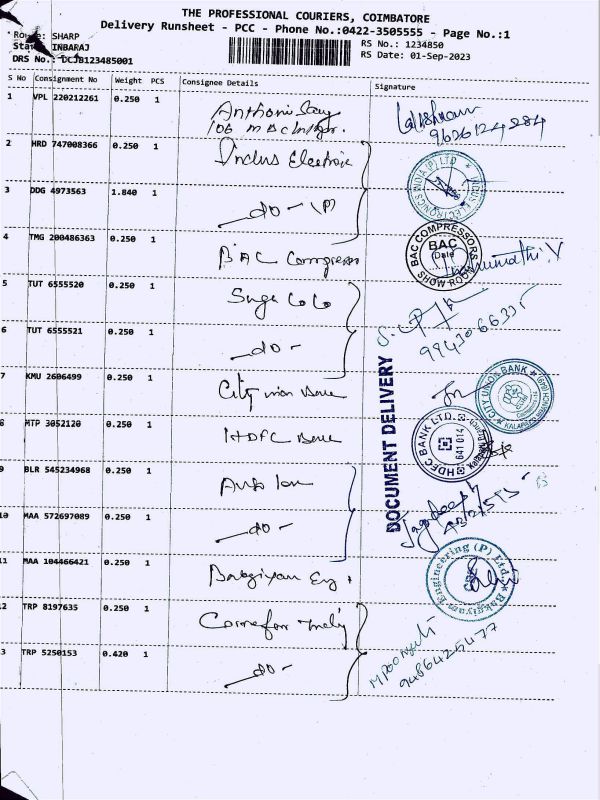 THE PROFESSIONAL COURIERS, COIMBATORE
Delivery Runsheet - PCC - Phone No.:0422-3505555 - Page No.:1
Route: SHARP
RS No.: 1234850
INBARAJ
RS Date: 01-Sep-2023
DRS No.: DCJB123485001
S No Consignment No Weight PCS Consignee Details Signature
1 VPL 220212261 0.250 1
9626124284
2 HRD 747008366 0.250 1 Indus Electronic
INDUS ELECTRONICS INDIA (P) LTD
3 DDG 4973563 1.840 1 -do-
4 TMG 200486363 0.250 1 BAC Compressor
BAC COMPRESSORS BAC Date SHOW ROOM
5 TUT 6555520 0.250 1
6 TUT 6555521 0.250 1 -do-
7 KMU 2606499 0.250 1 City union Bank
CITY UNION BANK
8 MTP 3052120 0.250 1 HDFC Bank
HDFC BANK LTD. 641 014
DOCUMENT DELIVERY
9 BLR 545234968 0.250 1
10 MAA 572697089 0.250 1 -do-
Jagdeesh
11 MAA 104466421 0.250 1
Bakgiyam Engineering (P) Ltd
12 TRP 8197635 0.250 1
13 TRP 5250153 0.420 1 -do-
9486425477